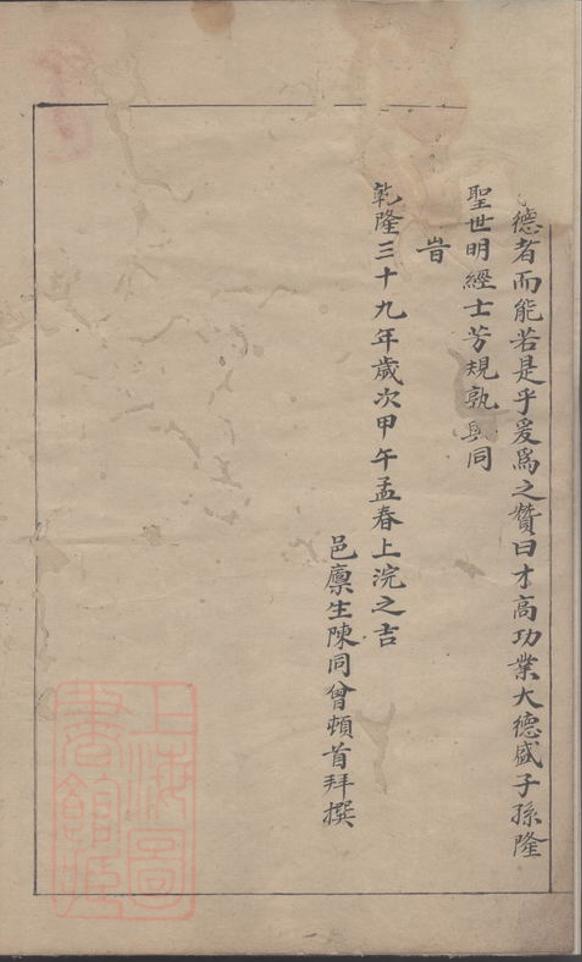 德者而能若是乎爰為之贊曰才高功業大德盛子孫隆
聖世明經士芳規孰與同
旹
乾隆三十九年歲次甲午孟春上浣之吉
邑廩生陳同曾頓首拜撰
上海圖
書館藏